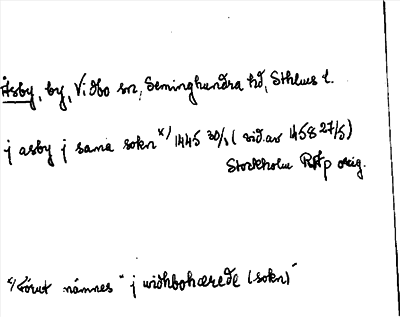 Åsby, by, Vidbo sn, Seminghundra hd, Sthlms l.
j asby j sama sokn x) 1445 30/1 (vid. av 1458 27/5)
Stockholm RAp orig.
x) Förut nämnes "j widhbohærede (sokn)"